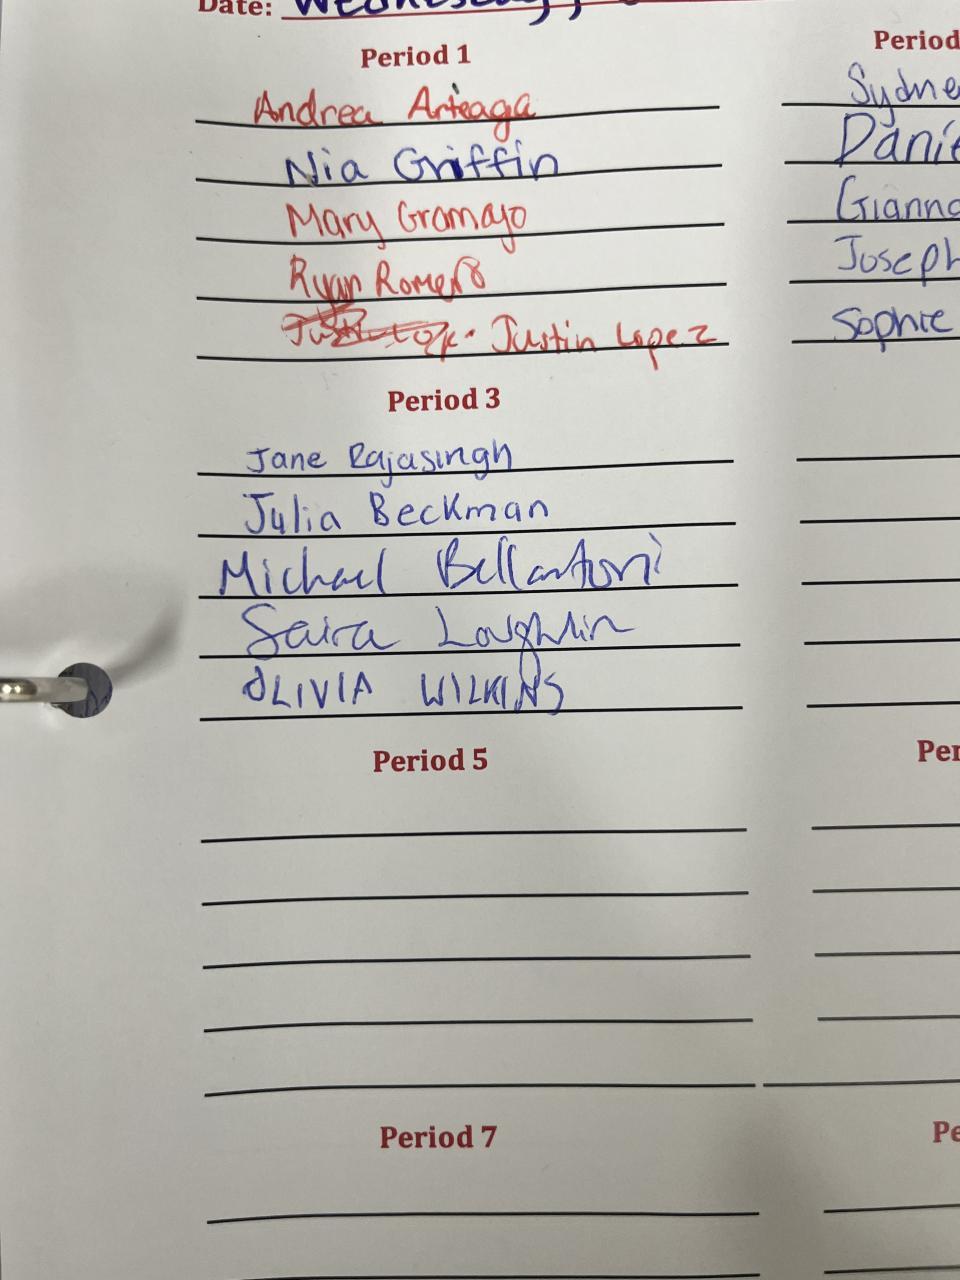 Date: Wednesday,
Period 1
Andrea Arteaga
Nia Griffin
Mary Gramajo
Ryan Romero
Justin Lopez
Period 3
Jane Rajasingh
Julia Beckman
Michael Bellantoni
Saira Loughlin
OLIVIA WILKINS
Period 5
Period 7
Period
Sydne
Danie
Gianna
Joseph
Sophie
Per
Pe